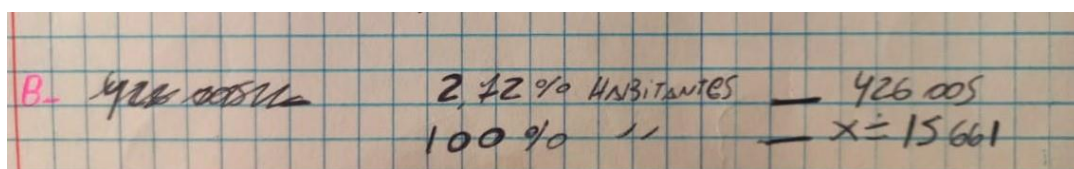 B- 2,72% HABITANTES — 426 005
100% " — X = 15 661